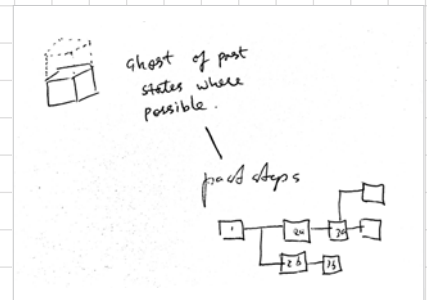 Ghost of past
states where
possible.
past steps
1
2a
3a
2b
3b